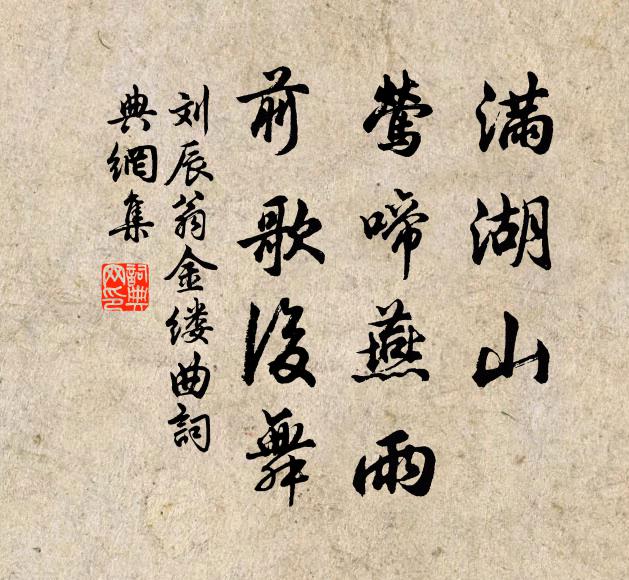 满湖山
莺啼燕雨
前歌後舞
刘辰翁金缕曲詞
典網集
詞典网印